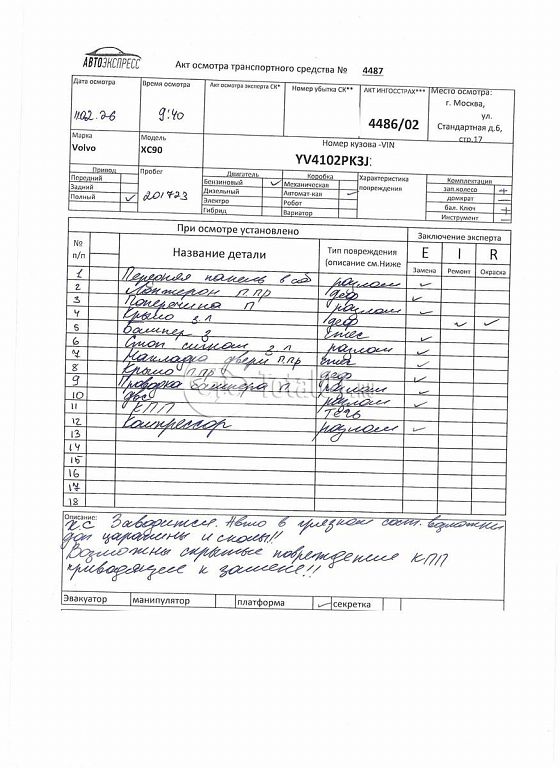 АВТОЭКСПРЕСС
Акт осмотра транспортного средства № 4487
Дата осмотра
Время осмотра 9:40
Акт осмотра эксперта СК*
Номер убытка СК**
АКТ ИНГОССТРАХ***
4486/02
Место осмотра:
г. Москва,
ул.
Стандартная д.6,
стр.17
Марка
Volvo
Модель
XC90
Номер кузова -VIN
YV4102PK3J
Привод
Передний
Задний
Полный ✓
Пробег
201723
Двигатель
Бензиновый ✓
Дизельный
Электро
Гибрид
Коробка
Механическая
Автомат-кая ✓
Робот
Вариатор
Характеристика
повреждения
Комплектация
зап.колесо +
домкрат –
бал. Ключ +
Инструмент –
При осмотре установлено
Заключение эксперта
№
п/п
Название детали
Тип повреждения
(описание см.Ниже
E I R
Замена Ремонт Окраска
1 Передняя панель в сб разлом ✓
2 Лонжерон п.пр деф ✓
3 Поперечина П разлом ✓
4 Крыло з.л деф ✓ ✓
5 Бампер з ✓
6 Стоп сигнал з л разлом ✓
7 Накладка двери п.пр ✓
8 Крыло п пр деф ✓
9 Проводка бампера П разлом ✓
10 двс разлом ✓
11 КПП течь
12 Компрессор разлом ✓
13
14
15
16
17
18
Описание:
Х.С Заводится. Авто в грязном сост. возможны
доп царапины и сколы!!
Возможны скрытые повреждения КПП
приводящие к замене!!
Эвакуатор манипулятор платформа ✓ секретка